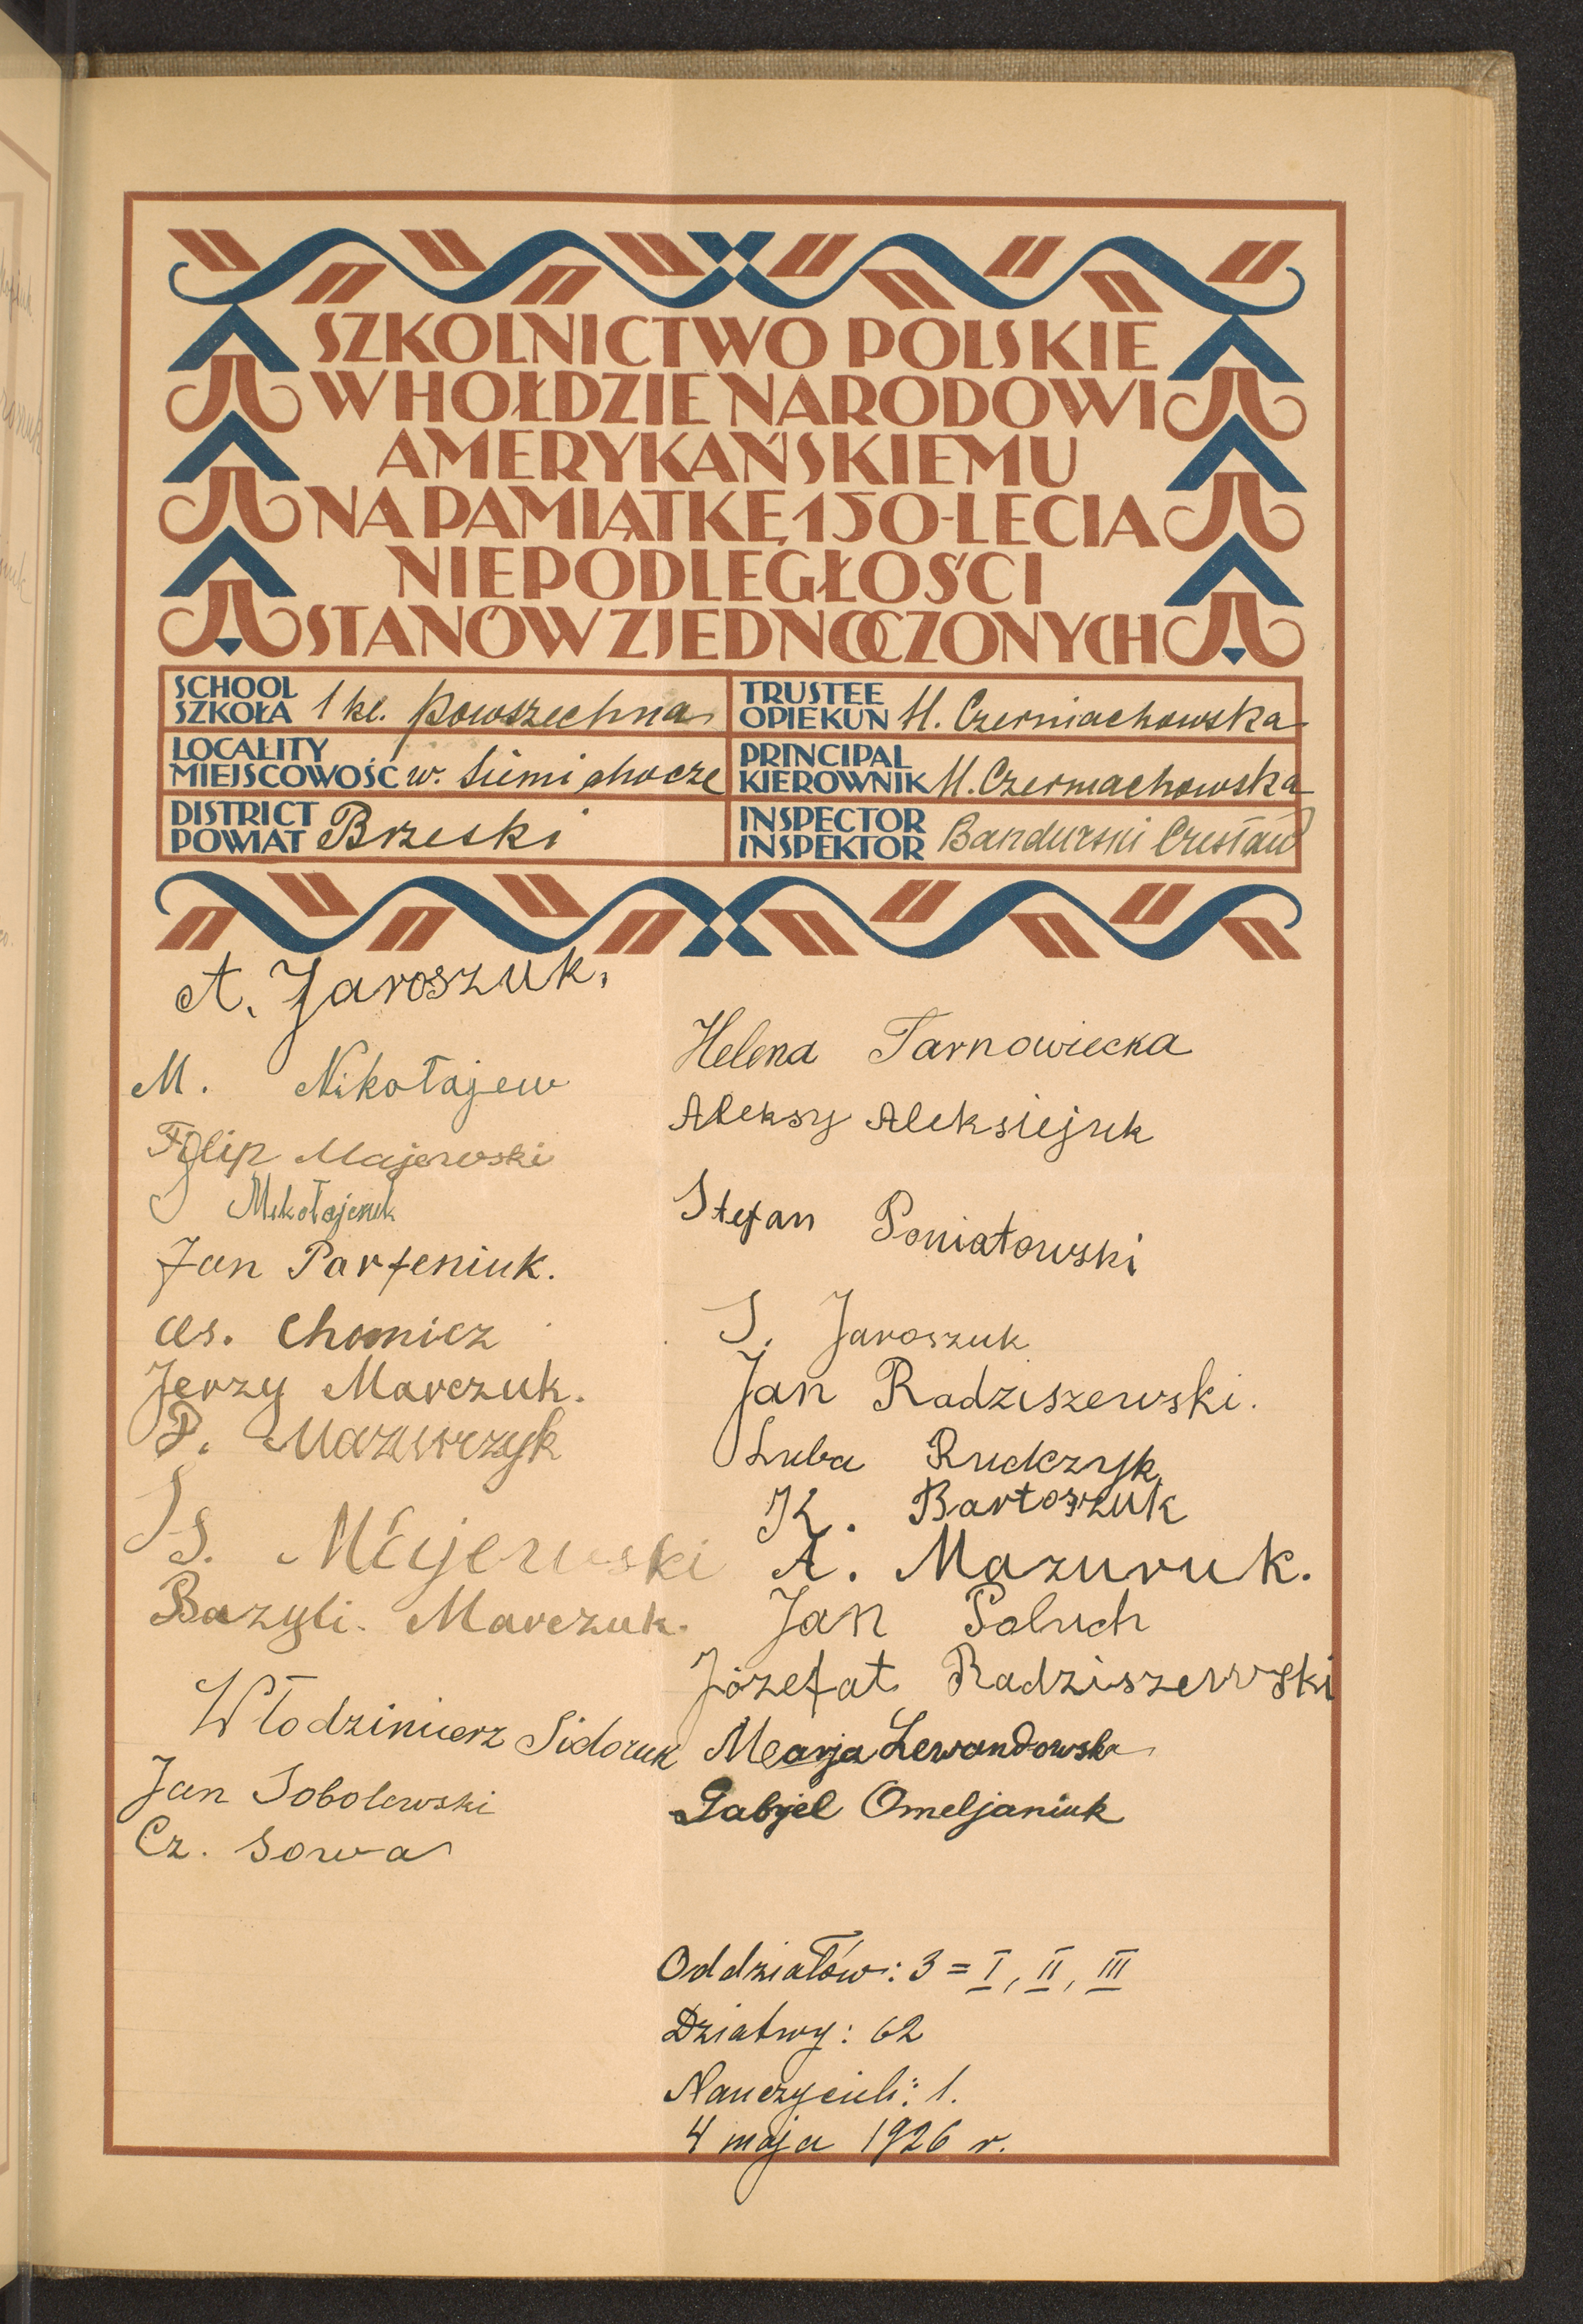 SZKOLNICTWO POLSKIE
W HOŁDZIE NARODOWI
AMERYKAŃSKIEMU
NA PAMIĄTKĘ 150-LECIA
NIEPODLEGŁOŚCI
STANÓW ZJEDNOCZONYCH
SCHOOL
SZKOŁA 1 kl. powszechna
TRUSTEE
OPIEKUN M. Czerniachowska
LOCALITY
MIEJSCOWOŚĆ w. Siemichocze
PRINCIPAL
KIEROWNIK M. Czerniachowska
DISTRICT
POWIAT Brzeski
INSPECTOR
INSPEKTOR Bandurski Czesław
A. Jaroszuk.
M. Nikołajew
Filip Majewski
Mikołajczuk
Jan Parfeniuk.
As. Chomicz
Jerzy Marczuk.
P. Mazurczyk
S. Majewski
Bazyli. Marczuk.
Włodzimierz Sidoruk
Jan Sobolewski
Cz. Sowa
Helena Tarnowiecka
Aleksy Aleksiejuk
Stefan Poniatowski
S. Jaroszuk
Jan Radziszewski.
Luba Rudczyk
K. Bartoszuk
A. Mazuruk.
Jan Poluch
Józefat Radziszewski
Marja Lewandowska
Gabrjel Omeljaniuk
Oddziałów: 3 = I, II, III
Dziatwy: 62
Nauczycieli: 1.
4 maja 1926 r.